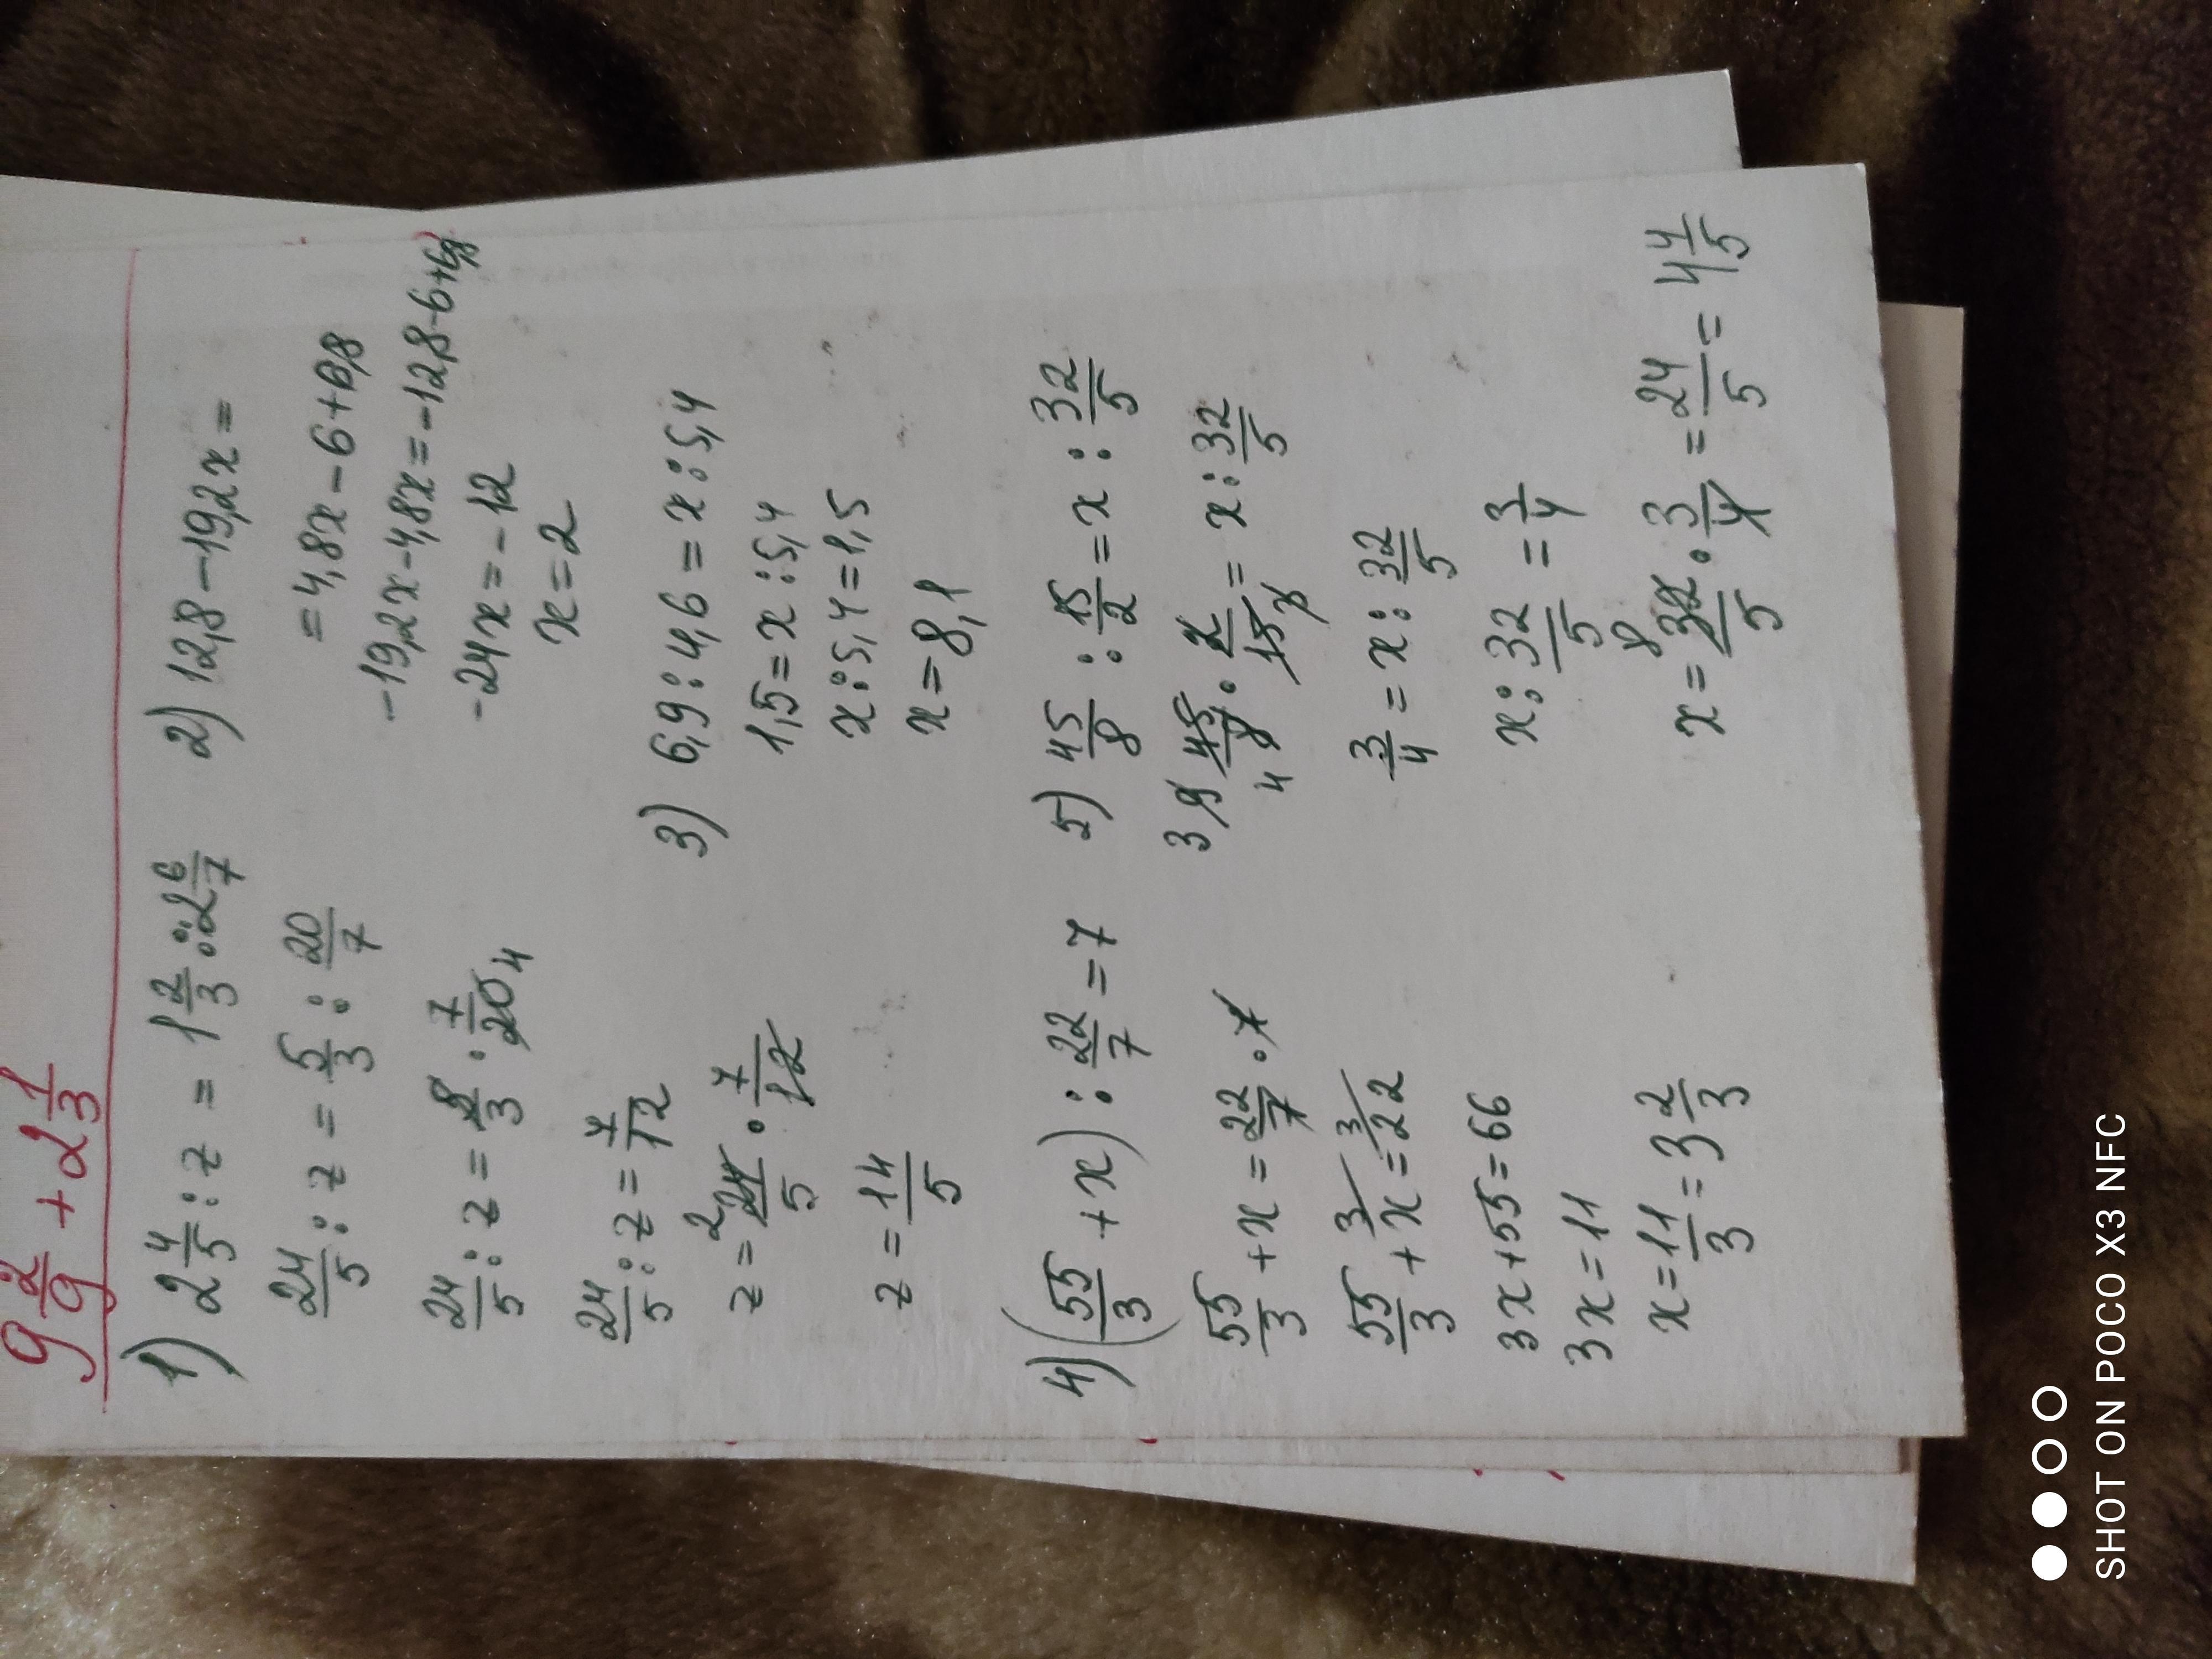 9 2/9 + 2 1/3
1) 2 4/5 : z = 1 2/3 : 2 6/7
24/5 : z = 5/3 : 20/7
24/5 : z = 5/3 · 7/20 4
24/5 : z = 7/12
z = 2 24/5 · 7/12
z = 14/5
2) 12,8 - 19,2x =
= 4,8x - 6 + 6,8
-19,2x - 4,8x = -12,8 - 6 + 6,8
-24x = -12
x = 2
3) 6,9 : 4,6 = x : 5,4
1,5 = x : 5,4
x : 5,4 = 1,5
x = 8,1
4) (55/3 + x) : 22/7 = 7
55/3 + x = 22/7 · 7
55/3 + 3/x = 3/22
3x + 55 = 66
3x = 11
x = 11/3 = 3 2/3
5) 45/8 : 15/2 = x : 32/5
3 9 45/8 4 · 2/15 3 = x : 32/5
3/4 = x : 32/5
x : 32/5 = 3/4
x = 8 32/5 · 3/4 = 24/5 = 4 4/5
SHOT ON POCO X3 NFC